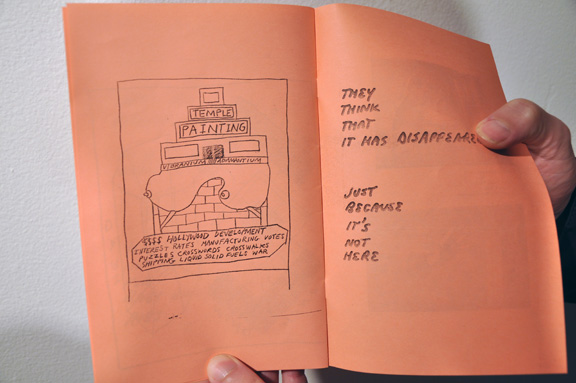 TEMPLE
PAINTING
VIBRANIUM ADAMANTIUM
$$$$ HOLLYWOOD DEVELOPMENT
INTEREST RATES MANUFACTURING VOTES
PUZZLES CROSSWORDS CROSSWALKS
SHIPPING LIQUID SOLID FUELS WAR
THEY
THINK
THAT
IT HAS DISAPPEARE
JUST
BECAUSE
IT'S
NOT
HERE